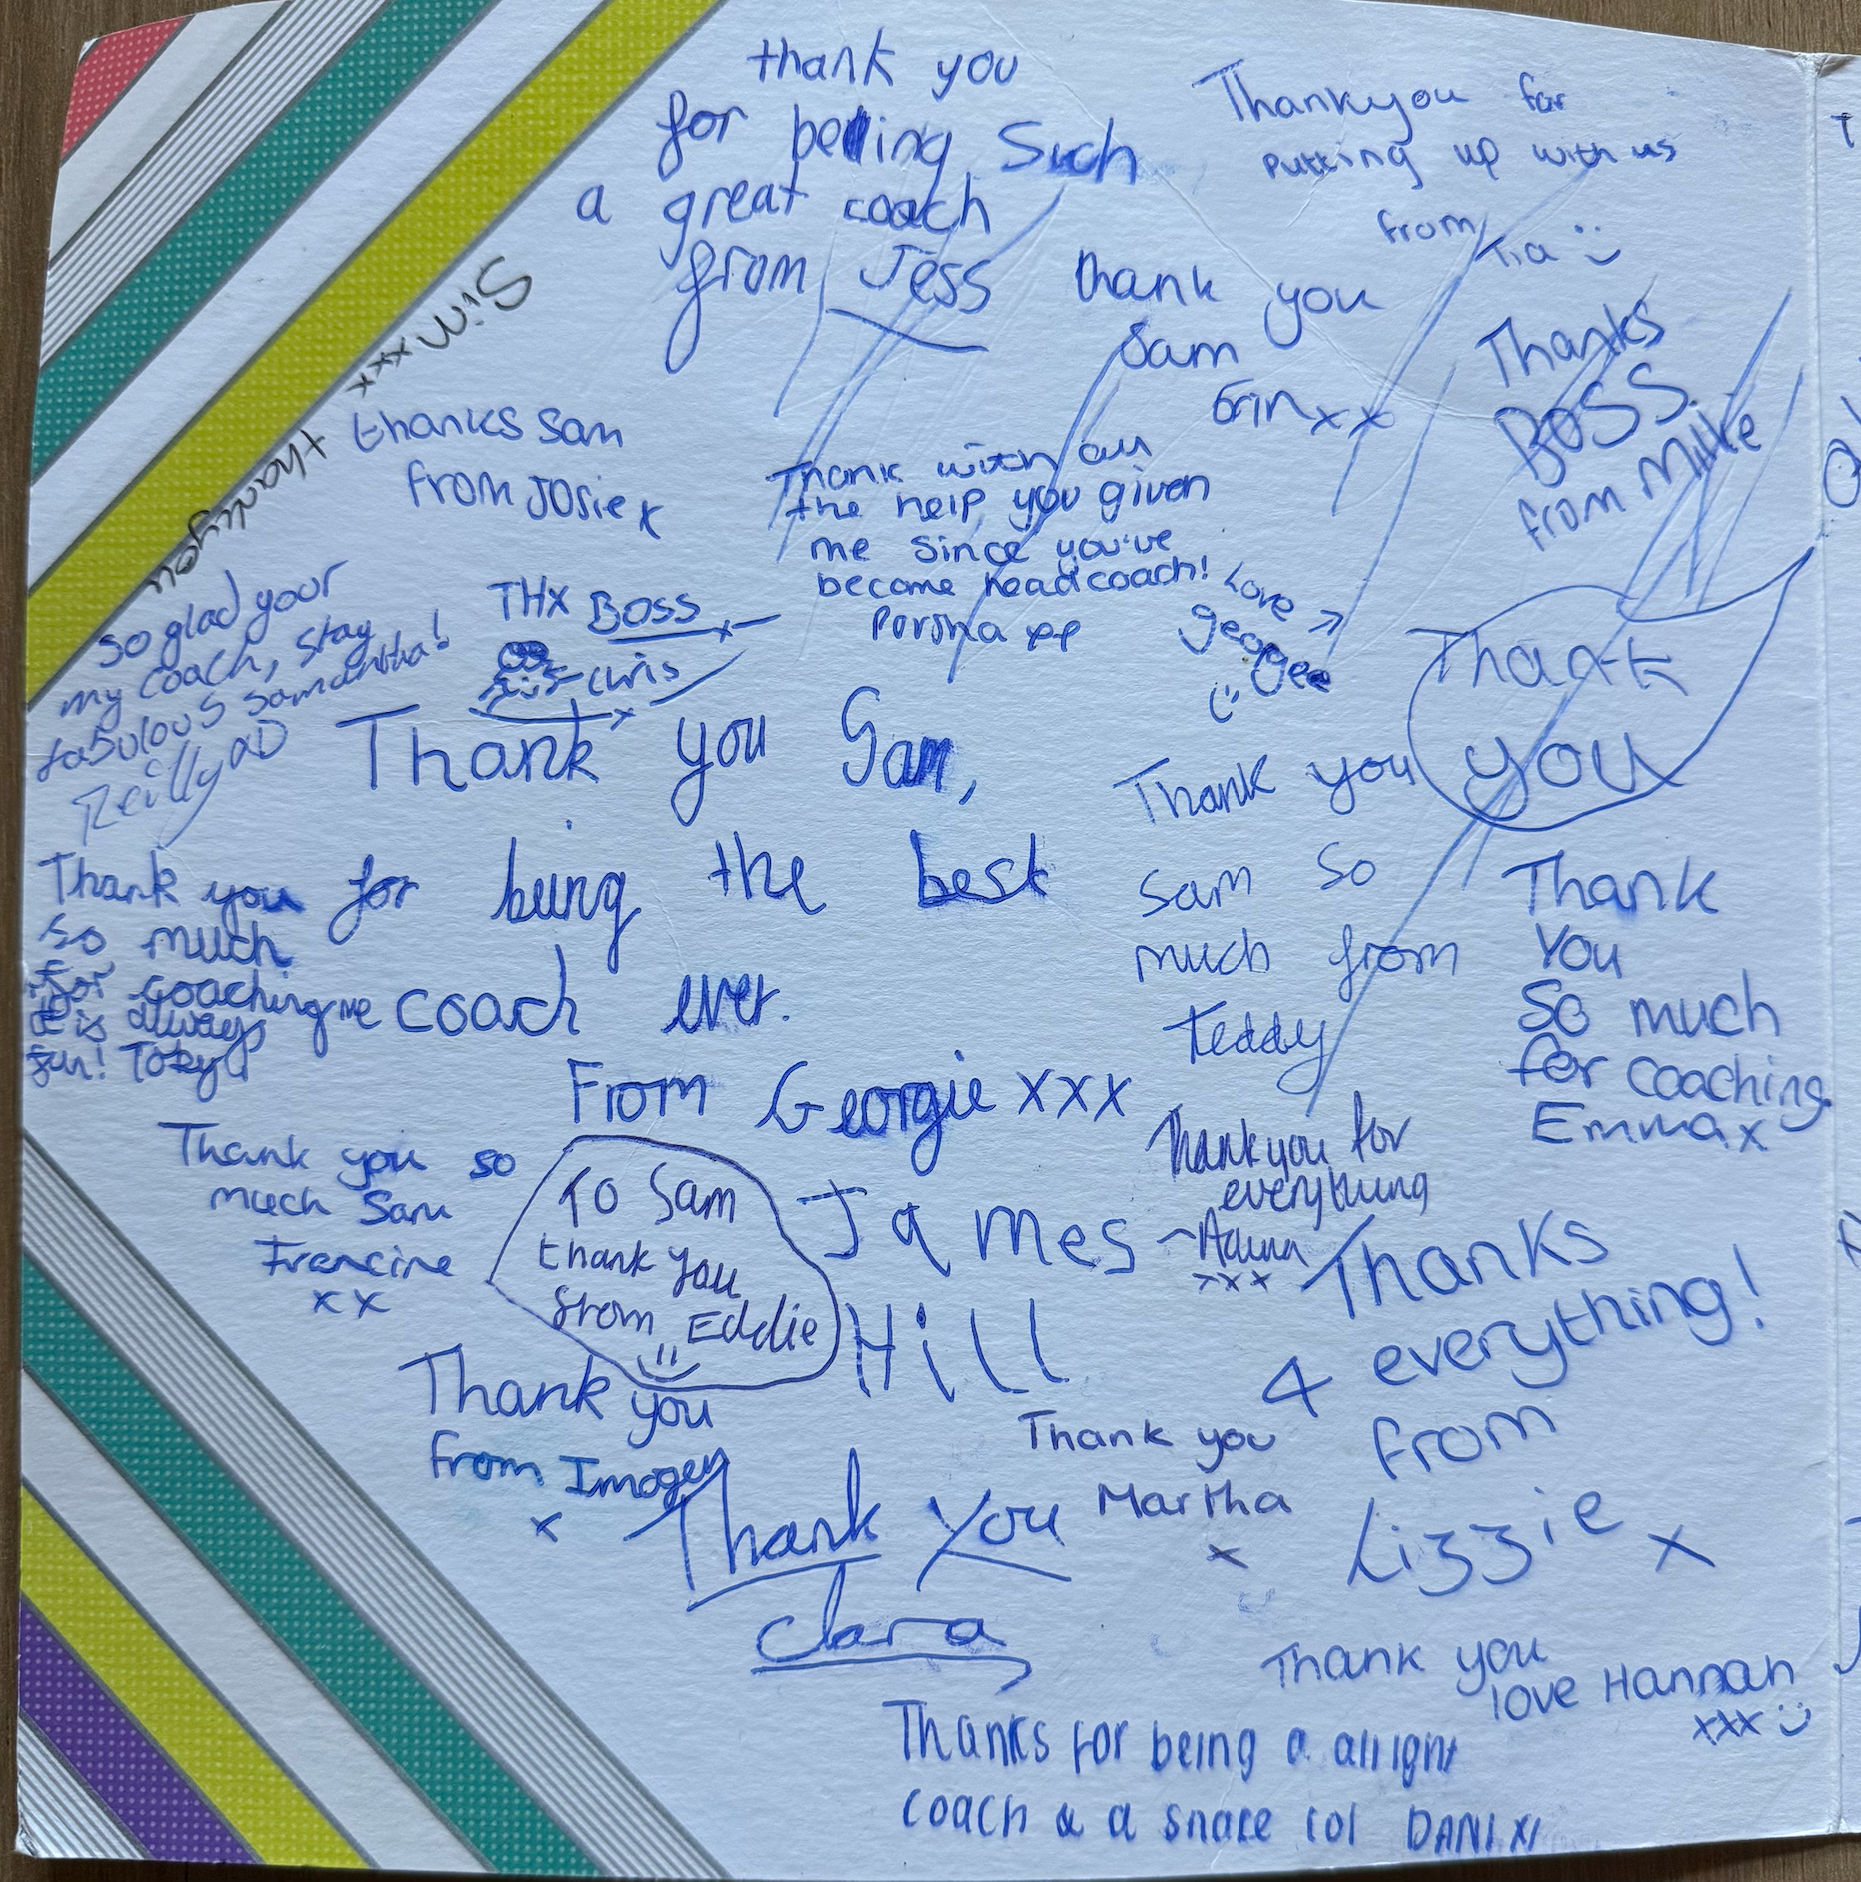 thank you
for being Such
a great coach
from Jess
Thankyou for
putting up with us
from Tia
thank you
Sam
Erin xx
Thanks
BOSS.
from Millie
thankyou
Sim xxx
thanks Sam
from Josie x
Thank with all
the help you given
me since you've
become head coach!
Love
georgee
So glad your
my coach, stay
fabulous Samantha!
Reilly
THX BOSS
- Chris
Thank
you
Thank you Sam,
for being the best
coach ever.
From Georgie xxx
Thank you
so much
for coaching me
it is always
fun! Toby
Thank you
Sam so
much from
teddy
Thank
You
So much
for coaching
Emma x
Thank you so
much Sam
Francine
x x
To Sam
thank you
from Eddie
James
Hill
Thankyou for
everything
xxx
Thanks
4 everything!
from
Lizzie x
Thank you
from Imogen
x
Thank you
Martha
x
Thank You
Clara
Thank you
love Hannah
xxx
Thanks for being a alright
coach & a snake lol DANI x